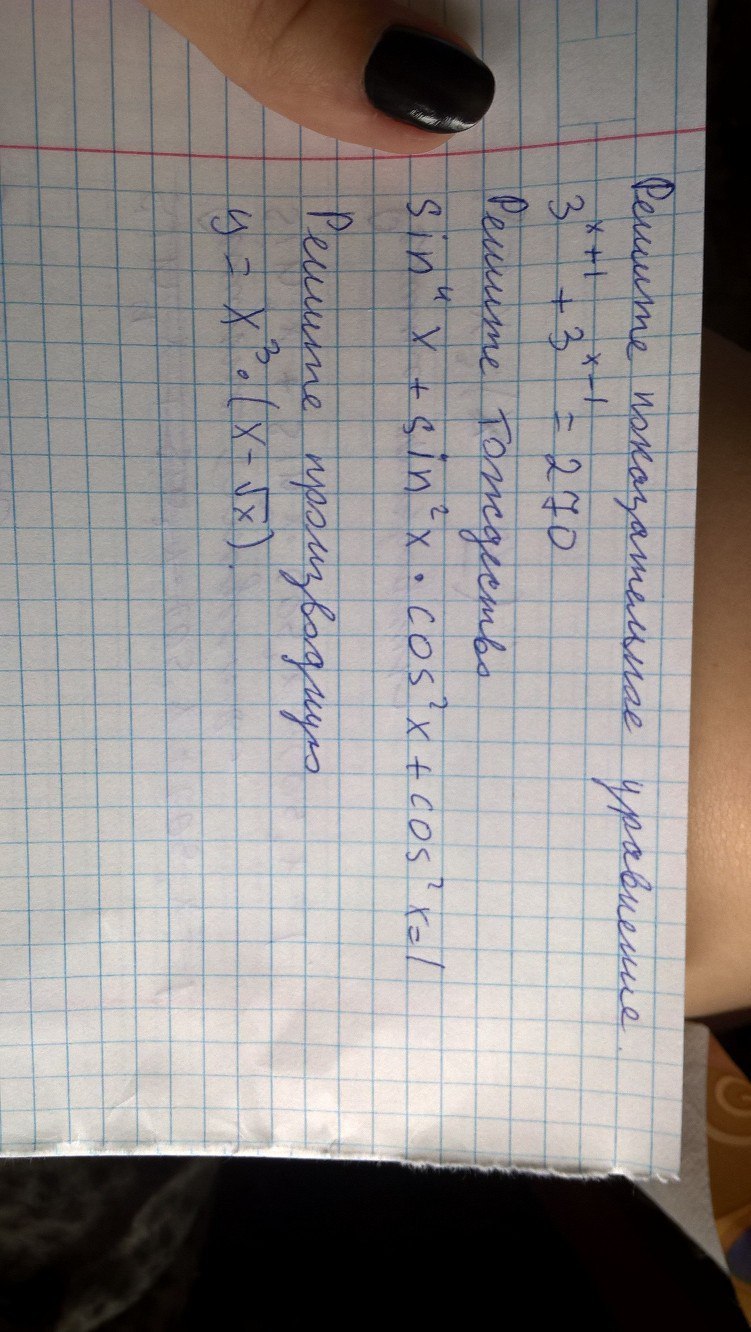 Решите показательное уравнение.
3^{x+1} + 3^{x-1} = 270
Решите тождество
sin⁴ x + sin² x · cos² x + cos² x = 1
Решите производную
y = x³ · (x - √x).